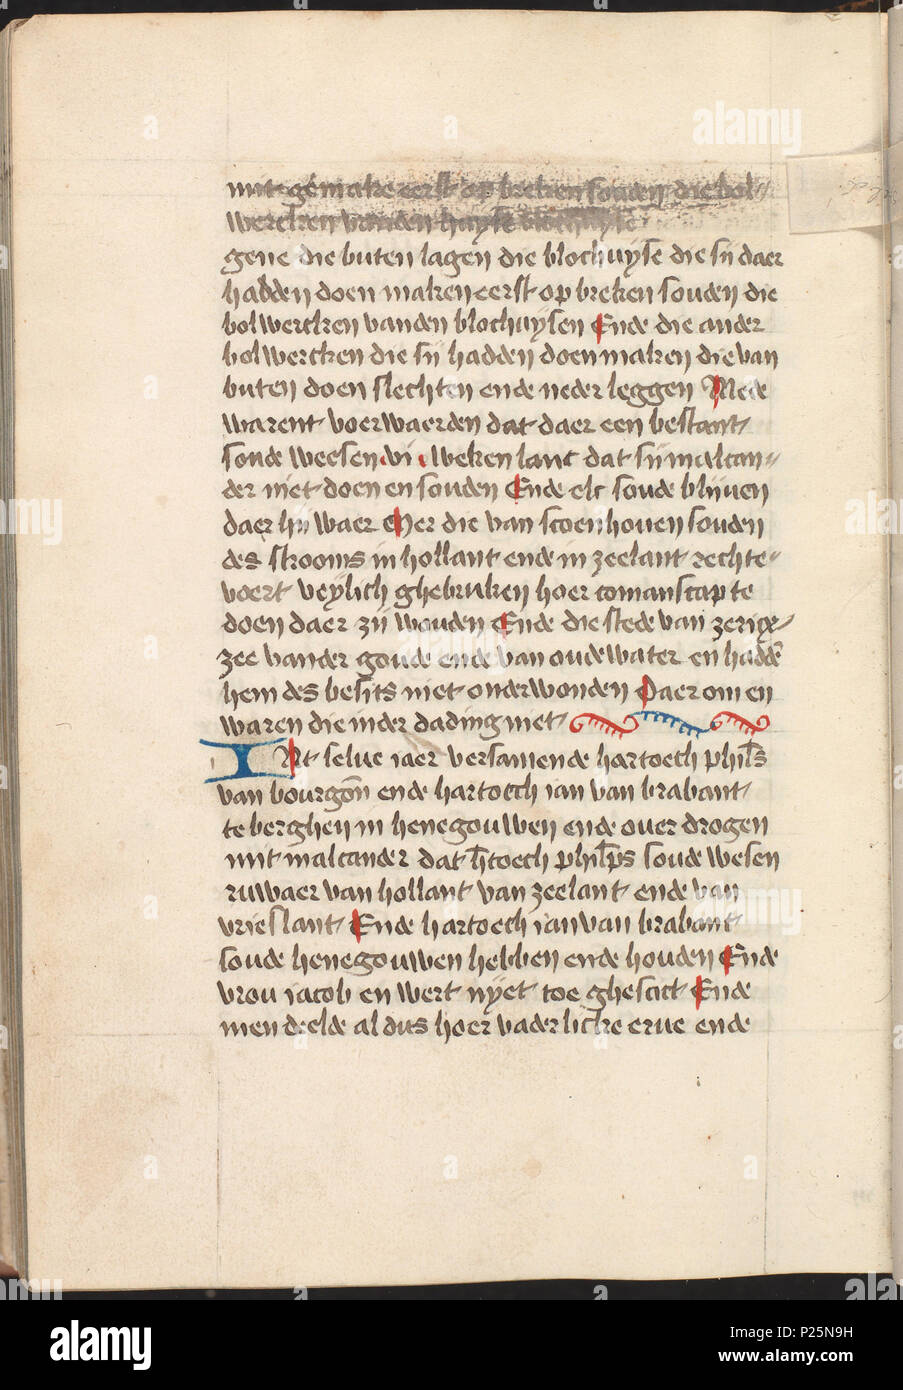 mit gemake eerst op breken souden die bol〃
wercken vanden huyse
gene die buten lagen die blochuyse die sij daer
hadden doen maken eerst op breken souden die
bolwercken vanden blochuysen Ende die ander
bolwercken die sij hadden doen maken die van
buten doen slechten ende neder leggen Mede
warent voerwaerden dat daer een bestant
soude weesen .vi. weken lanc dat sij malcan〃
der niet doen en souden Ende elc soude blijuen
daer hij waer Mer die van scoenhouen souden
des strooms in hollant ende in zeelant rechte〃
voert veylich ghebruken hoer comanscap te
doen daer zij wouden Ende die stede van zerixe〃
zee vander goude ende van oudewater en haddē
hem des besits niet onderwonden Daer om en
waren die in der dading niet
INt selue iaer versamende hartoech philꝭ
van bourgōn ende hartoech ian van brabant
te berghen in henegouwen ende ouer drogen
mit malcander dat h̄toech philps soude wesen
ruwaer van hollant van zeelant ende van
vrieslant Ende hartoech ian van brabant
soude henegouwen hebben ende houden Ende
vrou iacob en wert nyet toe ghesact Ende
men deelde aldus hoer vaderlicke erue ende
alamy
a
alamy
Image ID: P25N9H
www.alamy.com